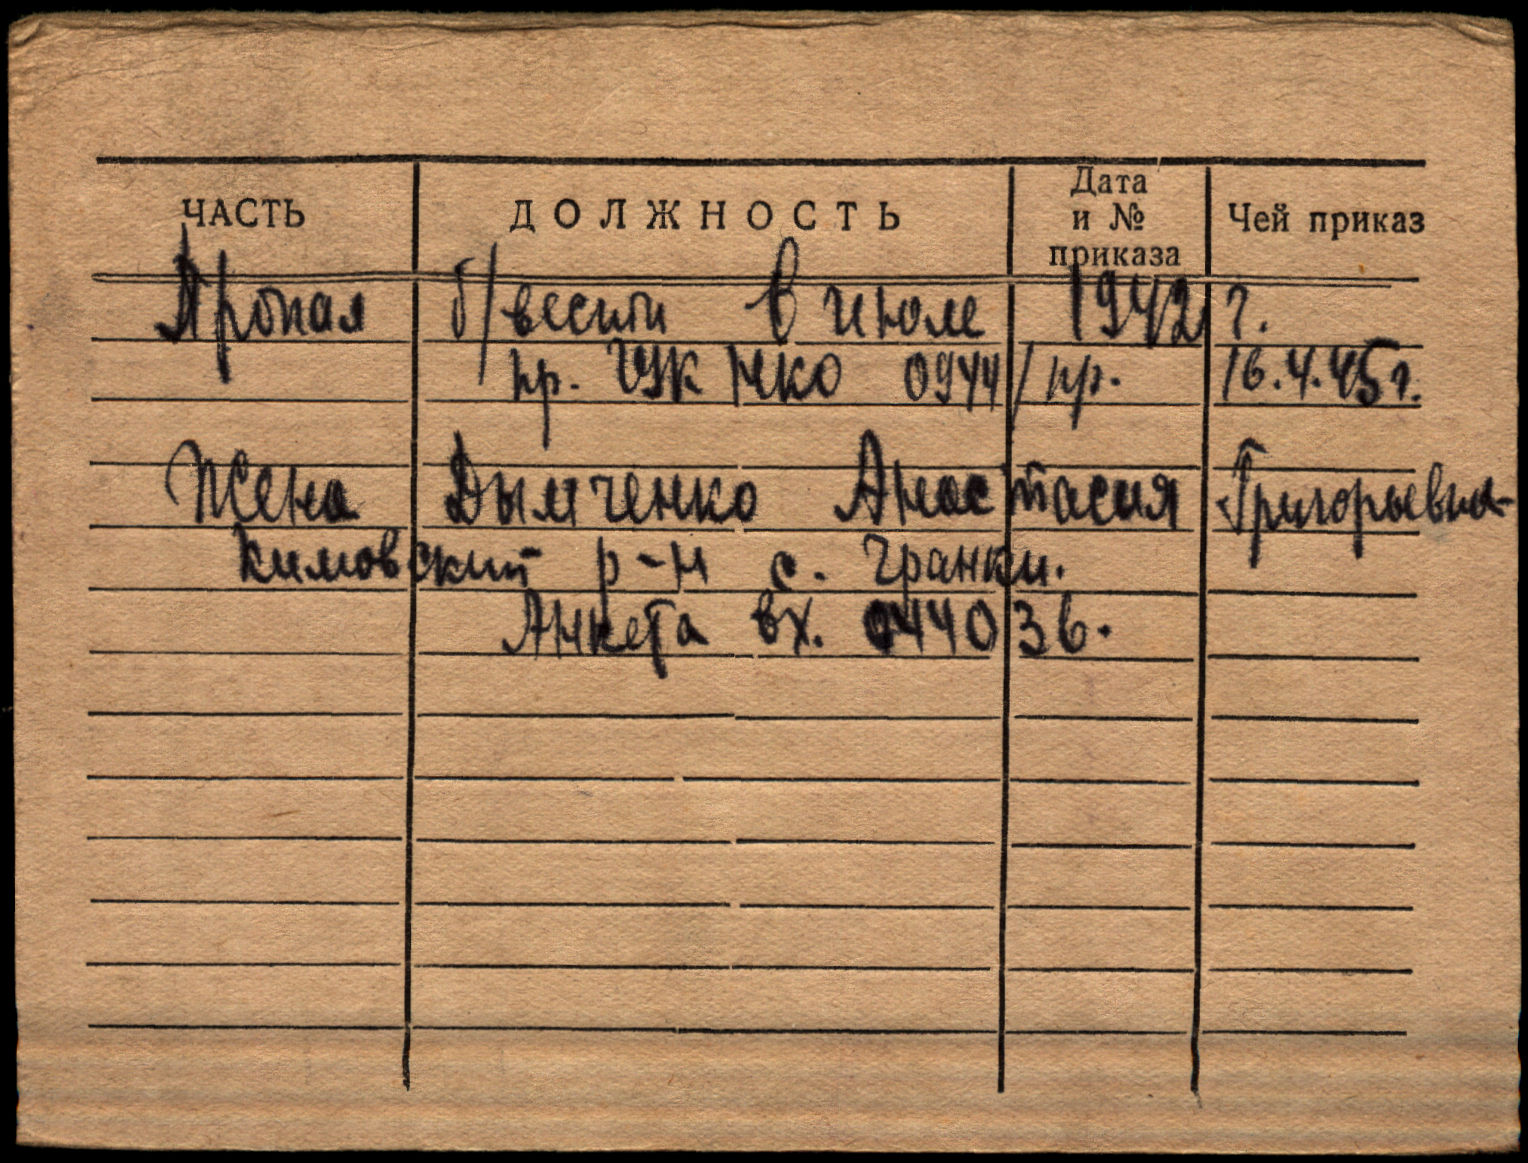 ЧАСТЬ ДОЛЖНОСТЬ Дата и № приказа Чей приказ
Пропал б/вести в июле 1942 г.
пр. ГУК НКО 0944/пр. 16.4.45 г.
Жена Дымченко Анастасия Григорьевна-
Кимовский р-н с. Гранки.
Анкета вх. 044036.